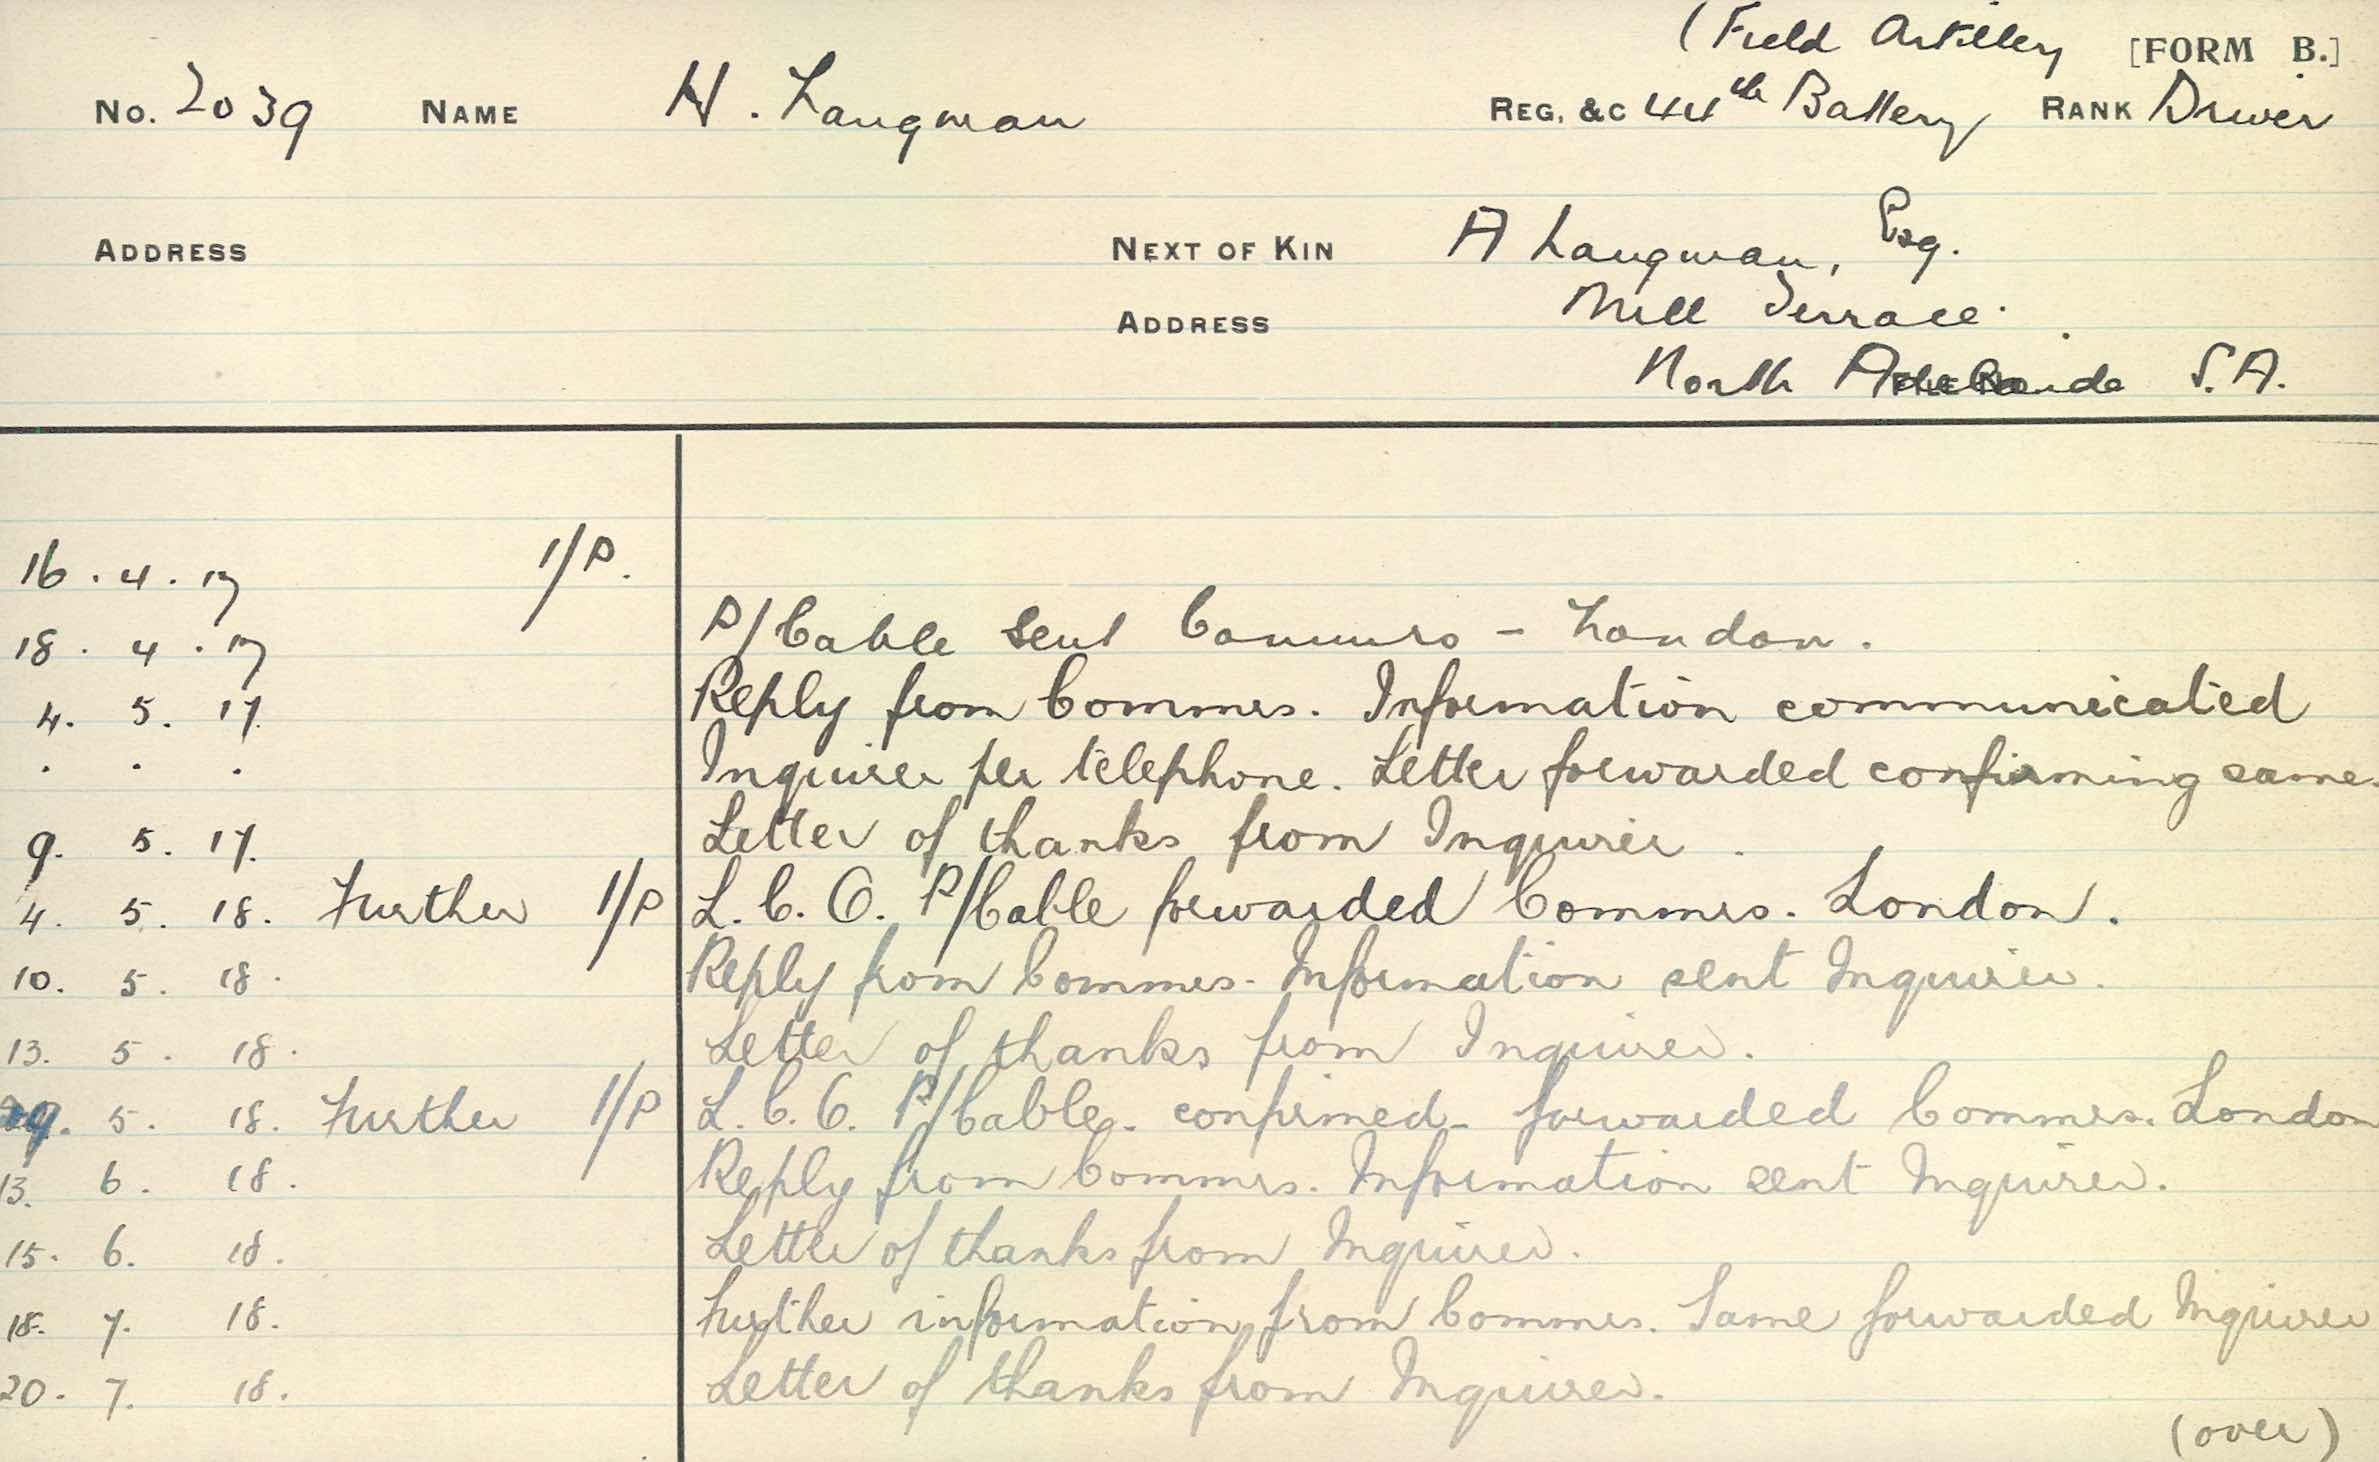 (Field Artillery [FORM B.]
No. 2039 NAME H. Langman REG. &C 44th Battery RANK Driver
ADDRESS NEXT OF KIN A Langman, Esq.
ADDRESS Mill Terrace.
North Adelaide S.A.
16. 4. 17 I/P.
18. 4. 17 P/Cable sent Commrs - London.
4. 5. 17. Reply from Commrs. Information communicated
. . . Inquirer per telephone. Letter forwarded confirming same.
9. 5. 17. Letter of thanks from Inquirer.
4. 5. 18. Further I/P L.C.O. P/Cable forwarded Commrs. London.
10. 5. 18. Reply from Commrs. Information sent Inquirer.
13. 5. 18. Letter of thanks from Inquirer.
5. 18. Further I/P L.C.C. P/Cable. confirmed - forwarded Commrs. London
13. 6. 18. Reply from Commrs. Information sent Inquirer.
15. 6. 18. Letter of thanks from Inquirer.
18. 7. 18. Further information from Commrs. Same forwarded Inquirer
20. 7. 18. Letter of thanks from Inquirer.
(over)